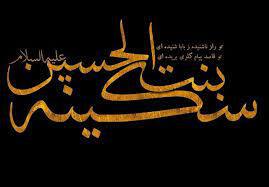 تو راز ناشنیده ز بابا شنیده ای
تو قاصد پیام گلوی بریده ای
علیهاالسلام
سکینه بنت الحسین